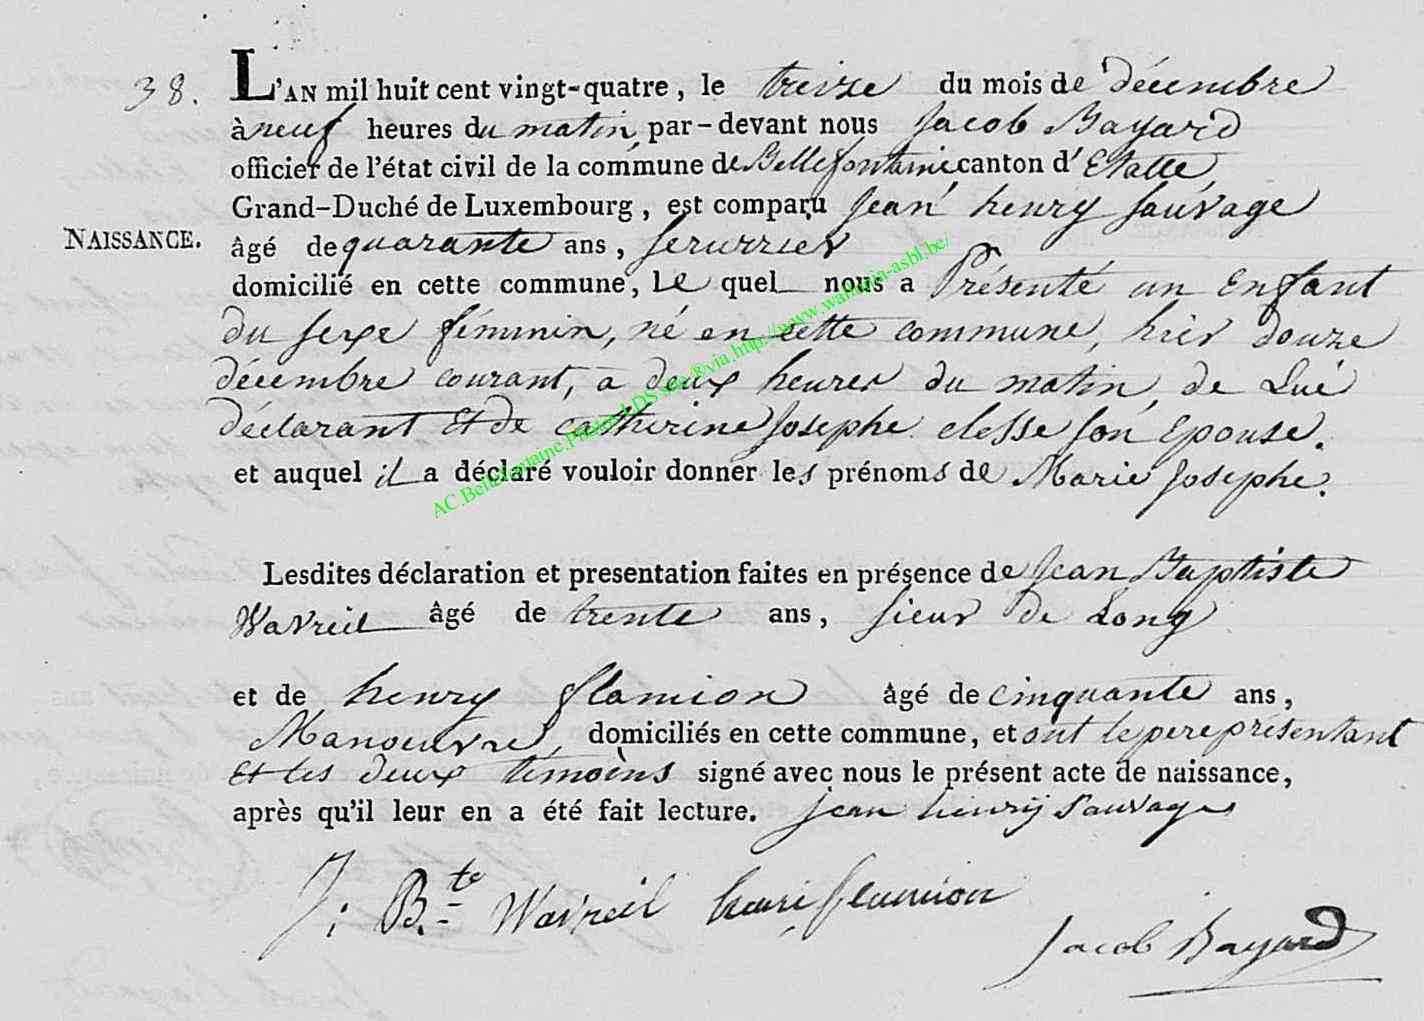 38.
L'AN mil huit cent vingt-quatre, le treize du mois de décembre
à neuf heures du matin, par-devant nous Jacob Bayard
officier de l'état civil de la commune de Bellefontaine canton d'Etalle,
Grand-Duché de Luxembourg, est comparu Jean henry Sauvage
NAISSANCE.
âgé de quarante ans, serurrier
domicilié en cette commune, Le quel nous a Présenté un Enfant
du sexe féminin, né en cette commune, hier douze
décembre courant, a deux heures du matin, de Lui
déclarant Et de catherine Josephe clesse son Epouse.
et auquel il a déclaré vouloir donner les prénoms de Marie Josephe.
AC.Bellefontaine. via.http://www.wallonia-asbl.be/
Lesdites déclaration et presentation faites en présence de Jean Baptiste
Wavreil âgé de trente ans, sieur de Long
et de henry flamion âgé de cinquante ans,
Manoeuvre, domiciliés en cette commune, et ont le pere présentant
Et les deux témoins signé avec nous le présent acte de naissance,
après qu'il leur en a été fait lecture. jean henrij Sauvage
J: B.te Wavreil henri flamion
Jacob Bayard